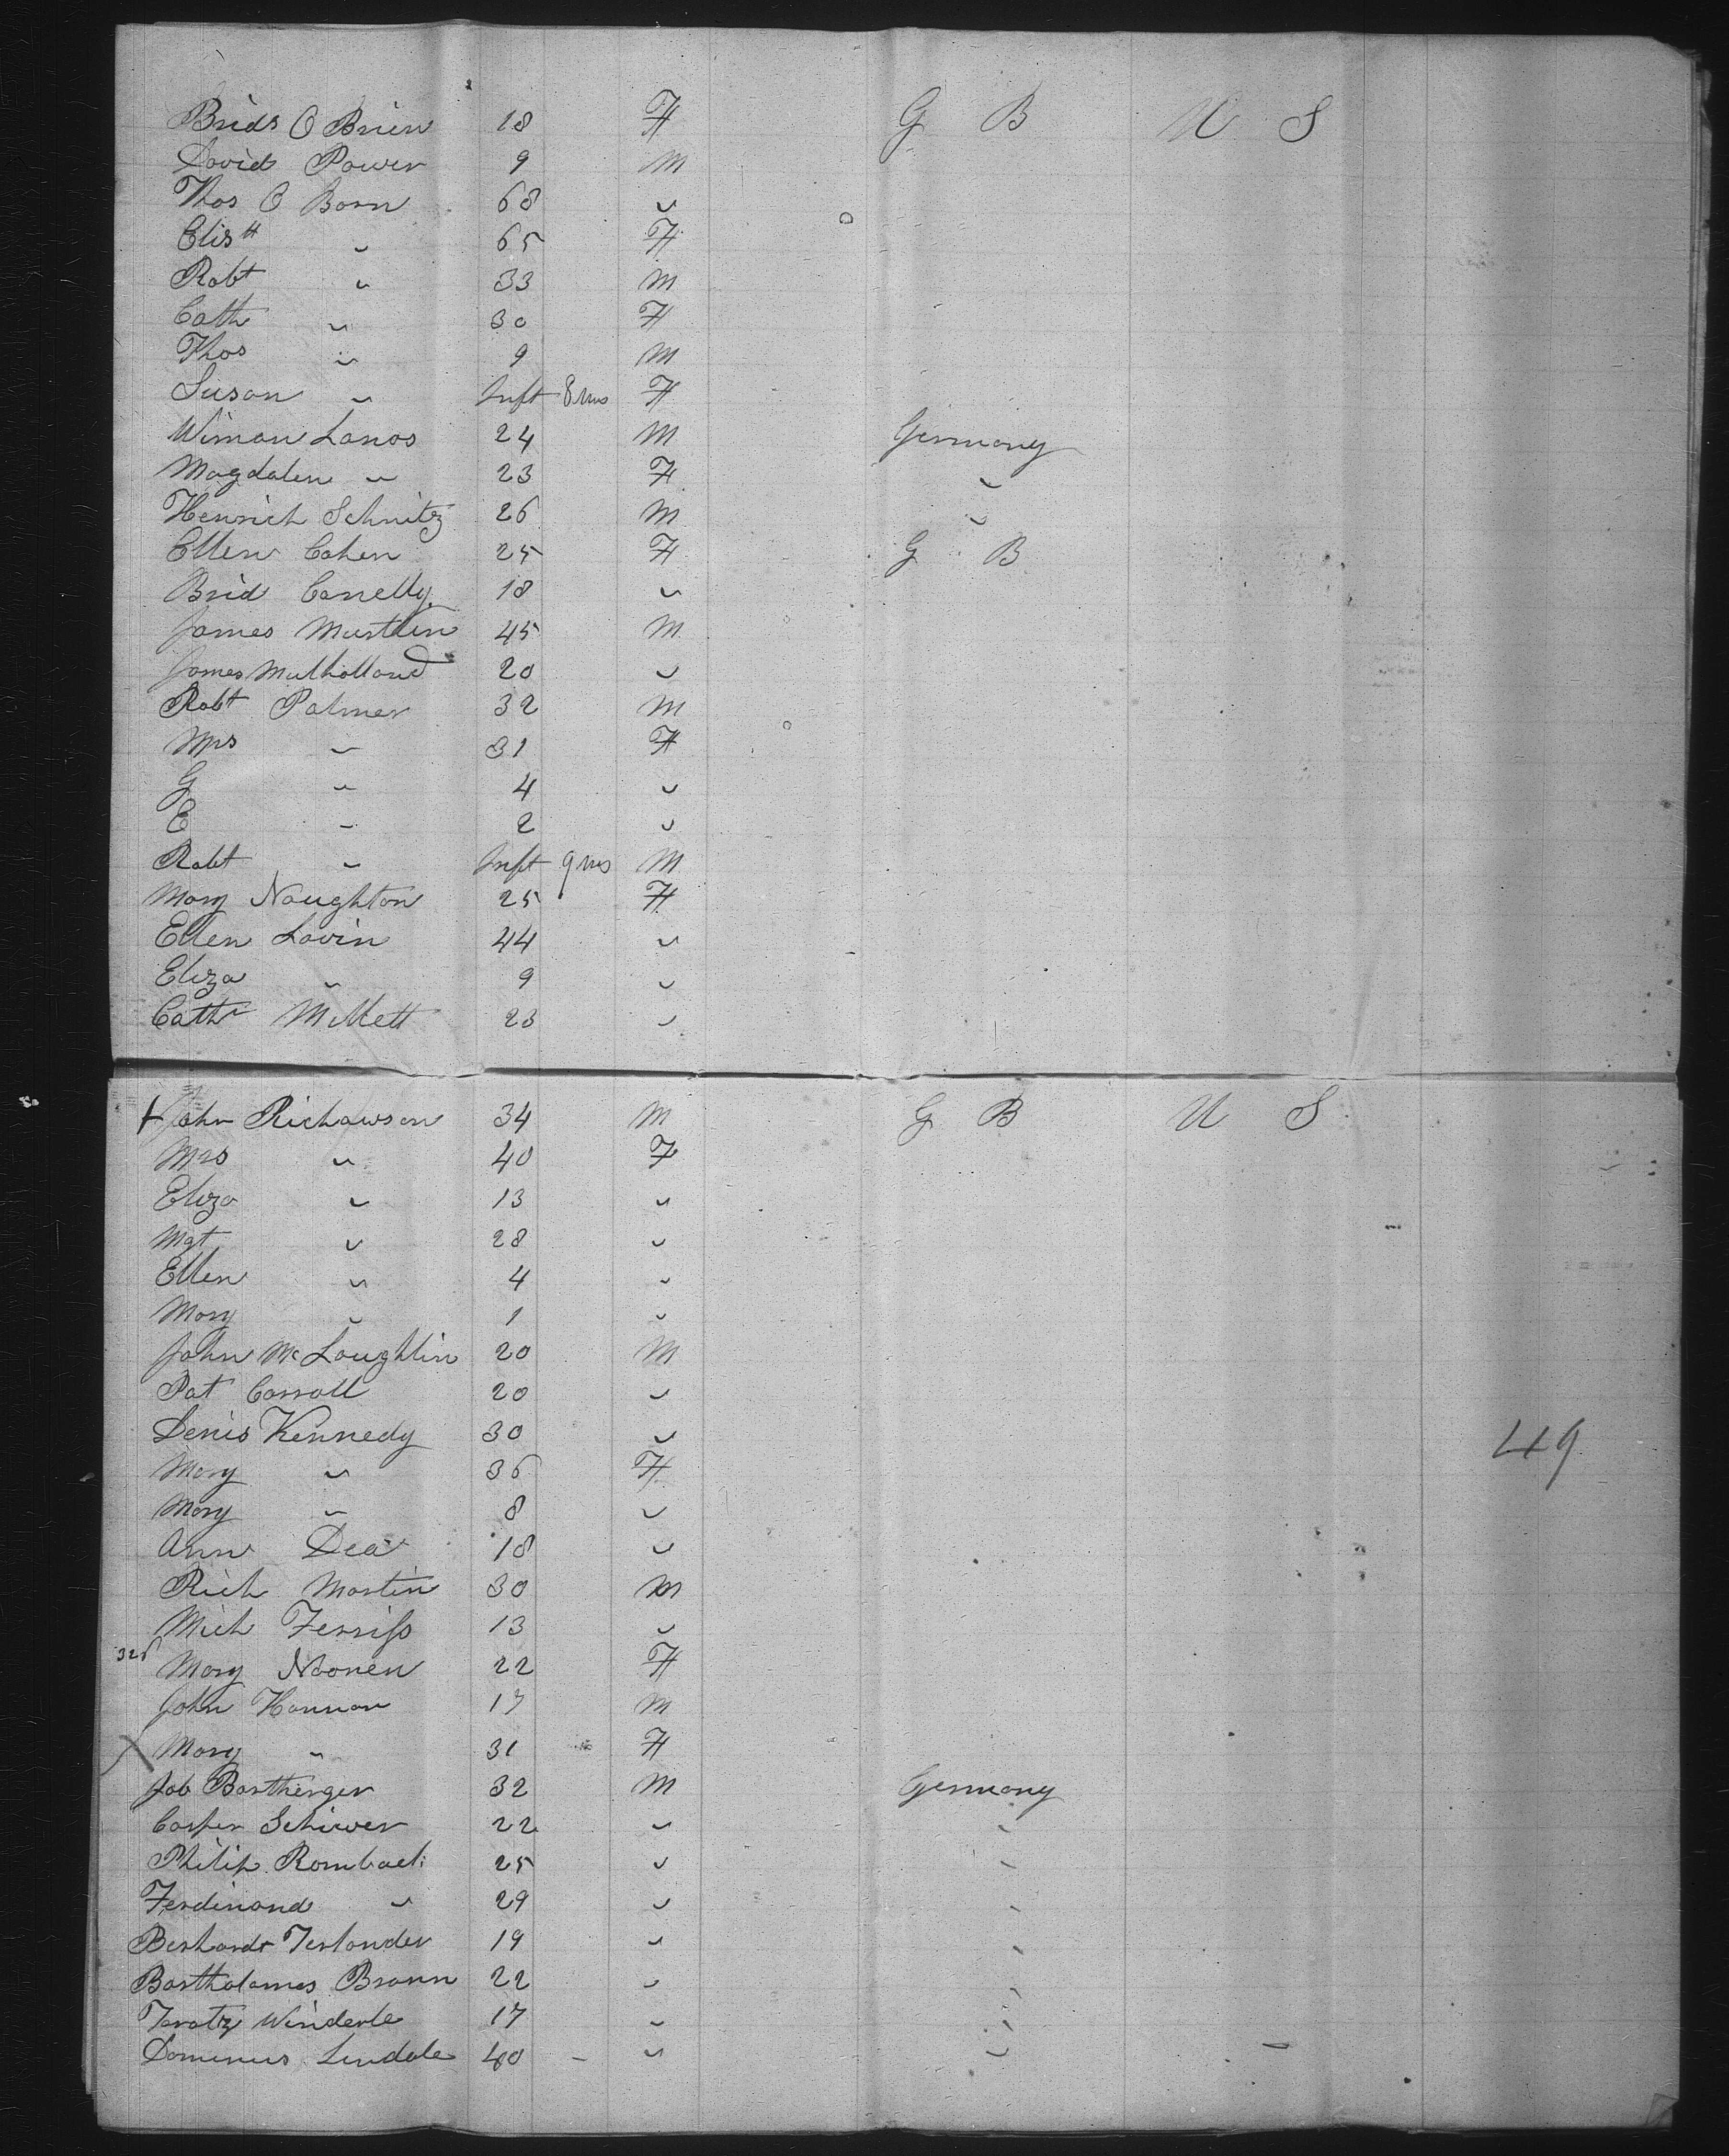 Bridt O Brien 18 F G B U S
David Power 9 M
Thos O Born 68 "
Elisth " 65 F
Robt " 33 M
Cath " 30 F
Thos " 9 M
Susan " Inft 8 ms F
Wiman Lanos 24 M Germany
Magdalen " 23 F "
Henrich Schnitz 26 M "
Ellen Cohen 25 F G B
Brid Conelly 18 "
James Murtlin 45 M
James Mulholland 20 "
Robt Palmer 32 M
Mrs " 31 F
G " 4 "
E " 2 "
Robt " Inft 9 ms M
Mary Naughton 25 F
Ellen Lavin 44 "
Eliza " 9 "
Cath Millett 23 "
John Richawson 34 M G B U S
Mrs " 40 F
Eliza " 13 "
Mgt " 28 "
Ellen " 4 "
Mary " 1 "
John Mc Loughlin 20 M
Pat Carroll 20 "
Denis Kennedy 30 " 49
Mary " 36 F
Mary " 8 "
Ann Dea 18 "
Rich Martin 30 M
Mich Ferriss 13 "
326 Mary Noonen 22 F
John Hannan 17 M
X Mary " 31 F
Job Bartherger 32 M Germany
Casper Schiwer 22 " "
Philip Rombach 25 " "
Ferdinand " 29 " "
Berhardt Terlander 19 " "
Bartholames Braun 22 " "
Winderle 17 " "
Domenus Lindale 40 " "